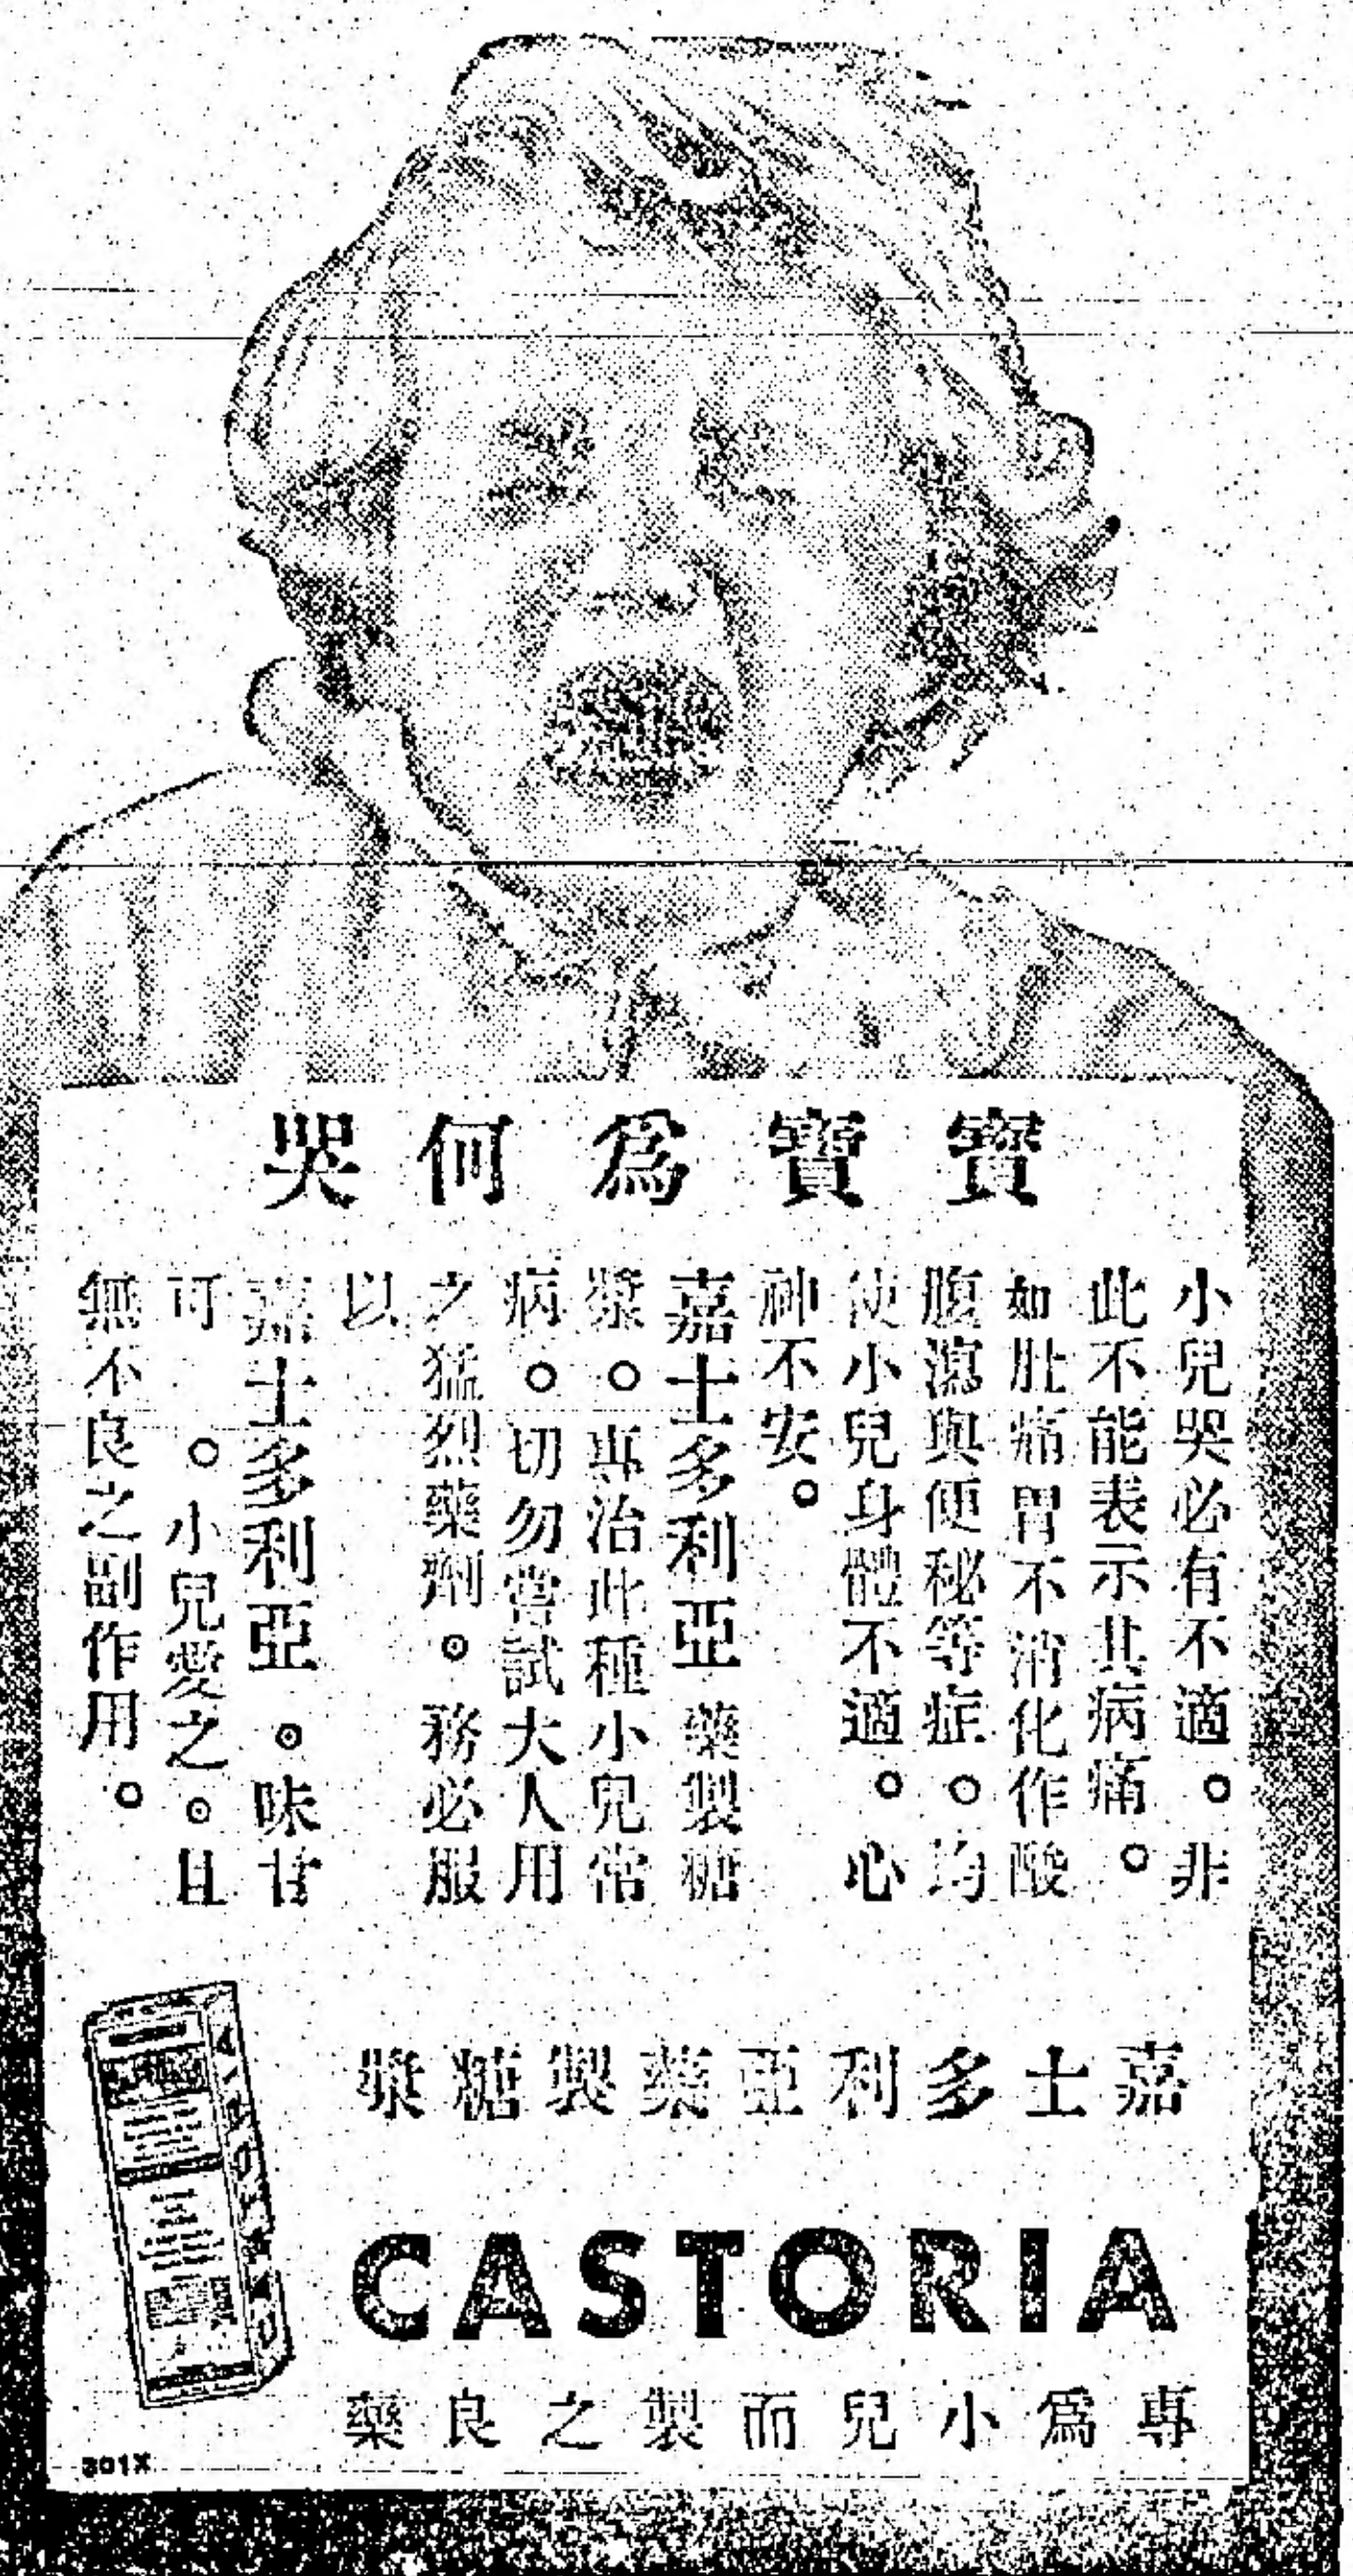 寶寶爲何哭
小兒哭必有不適。非
此不能表示其病痛。
如肚痛胃不消化作酸
腹瀉與便秘等症。均
使小兒身體不適。心
神不安。
嘉士多利亞藥製糖
漿。專治此種小兒常
病。切勿嘗試大人用
之猛烈藥劑。務必服
以
嘉士多利亞。味甘
可。小兒愛之。且
無不良之副作用。
嘉士多利亞藥製糖漿
CASTORIA
專爲小兒而製之良藥
301X